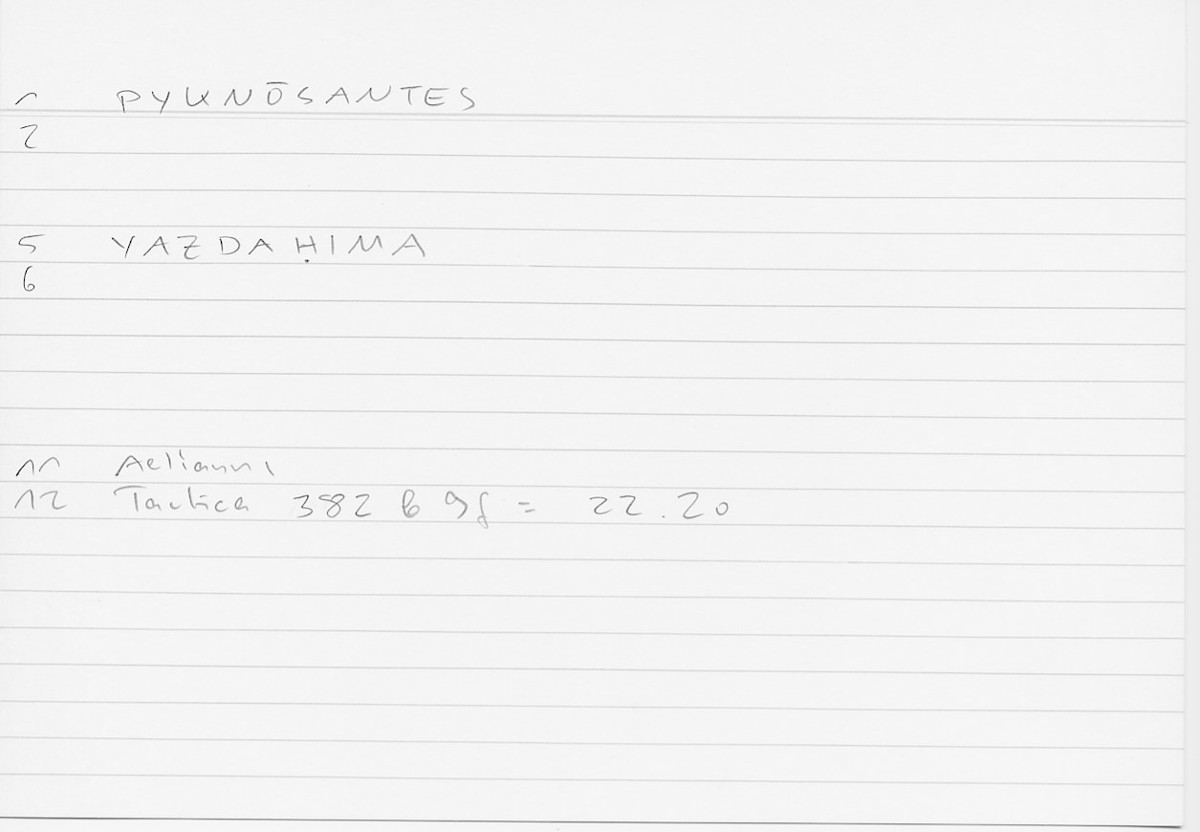 1 PYKNŌSANTES
2
5 YAZDAḤIMA
6
11 Aeliani
12 Tactica 382 b 9f = 22.20